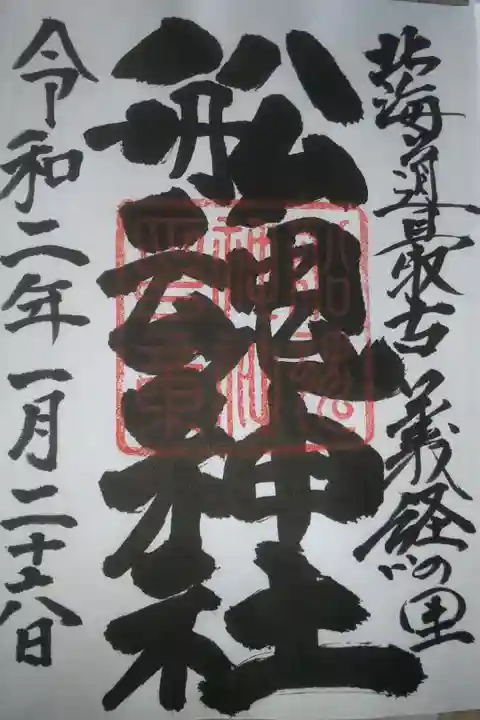 北海道最古 義経の里
舩魂神社
令和二年一月二十八日